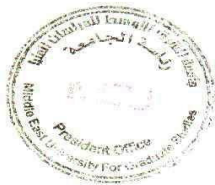 جامعة الشرق الأوسط للدراسات العليا
رئاسة الجامعة
President Office
Middle East University For Graduate Studies